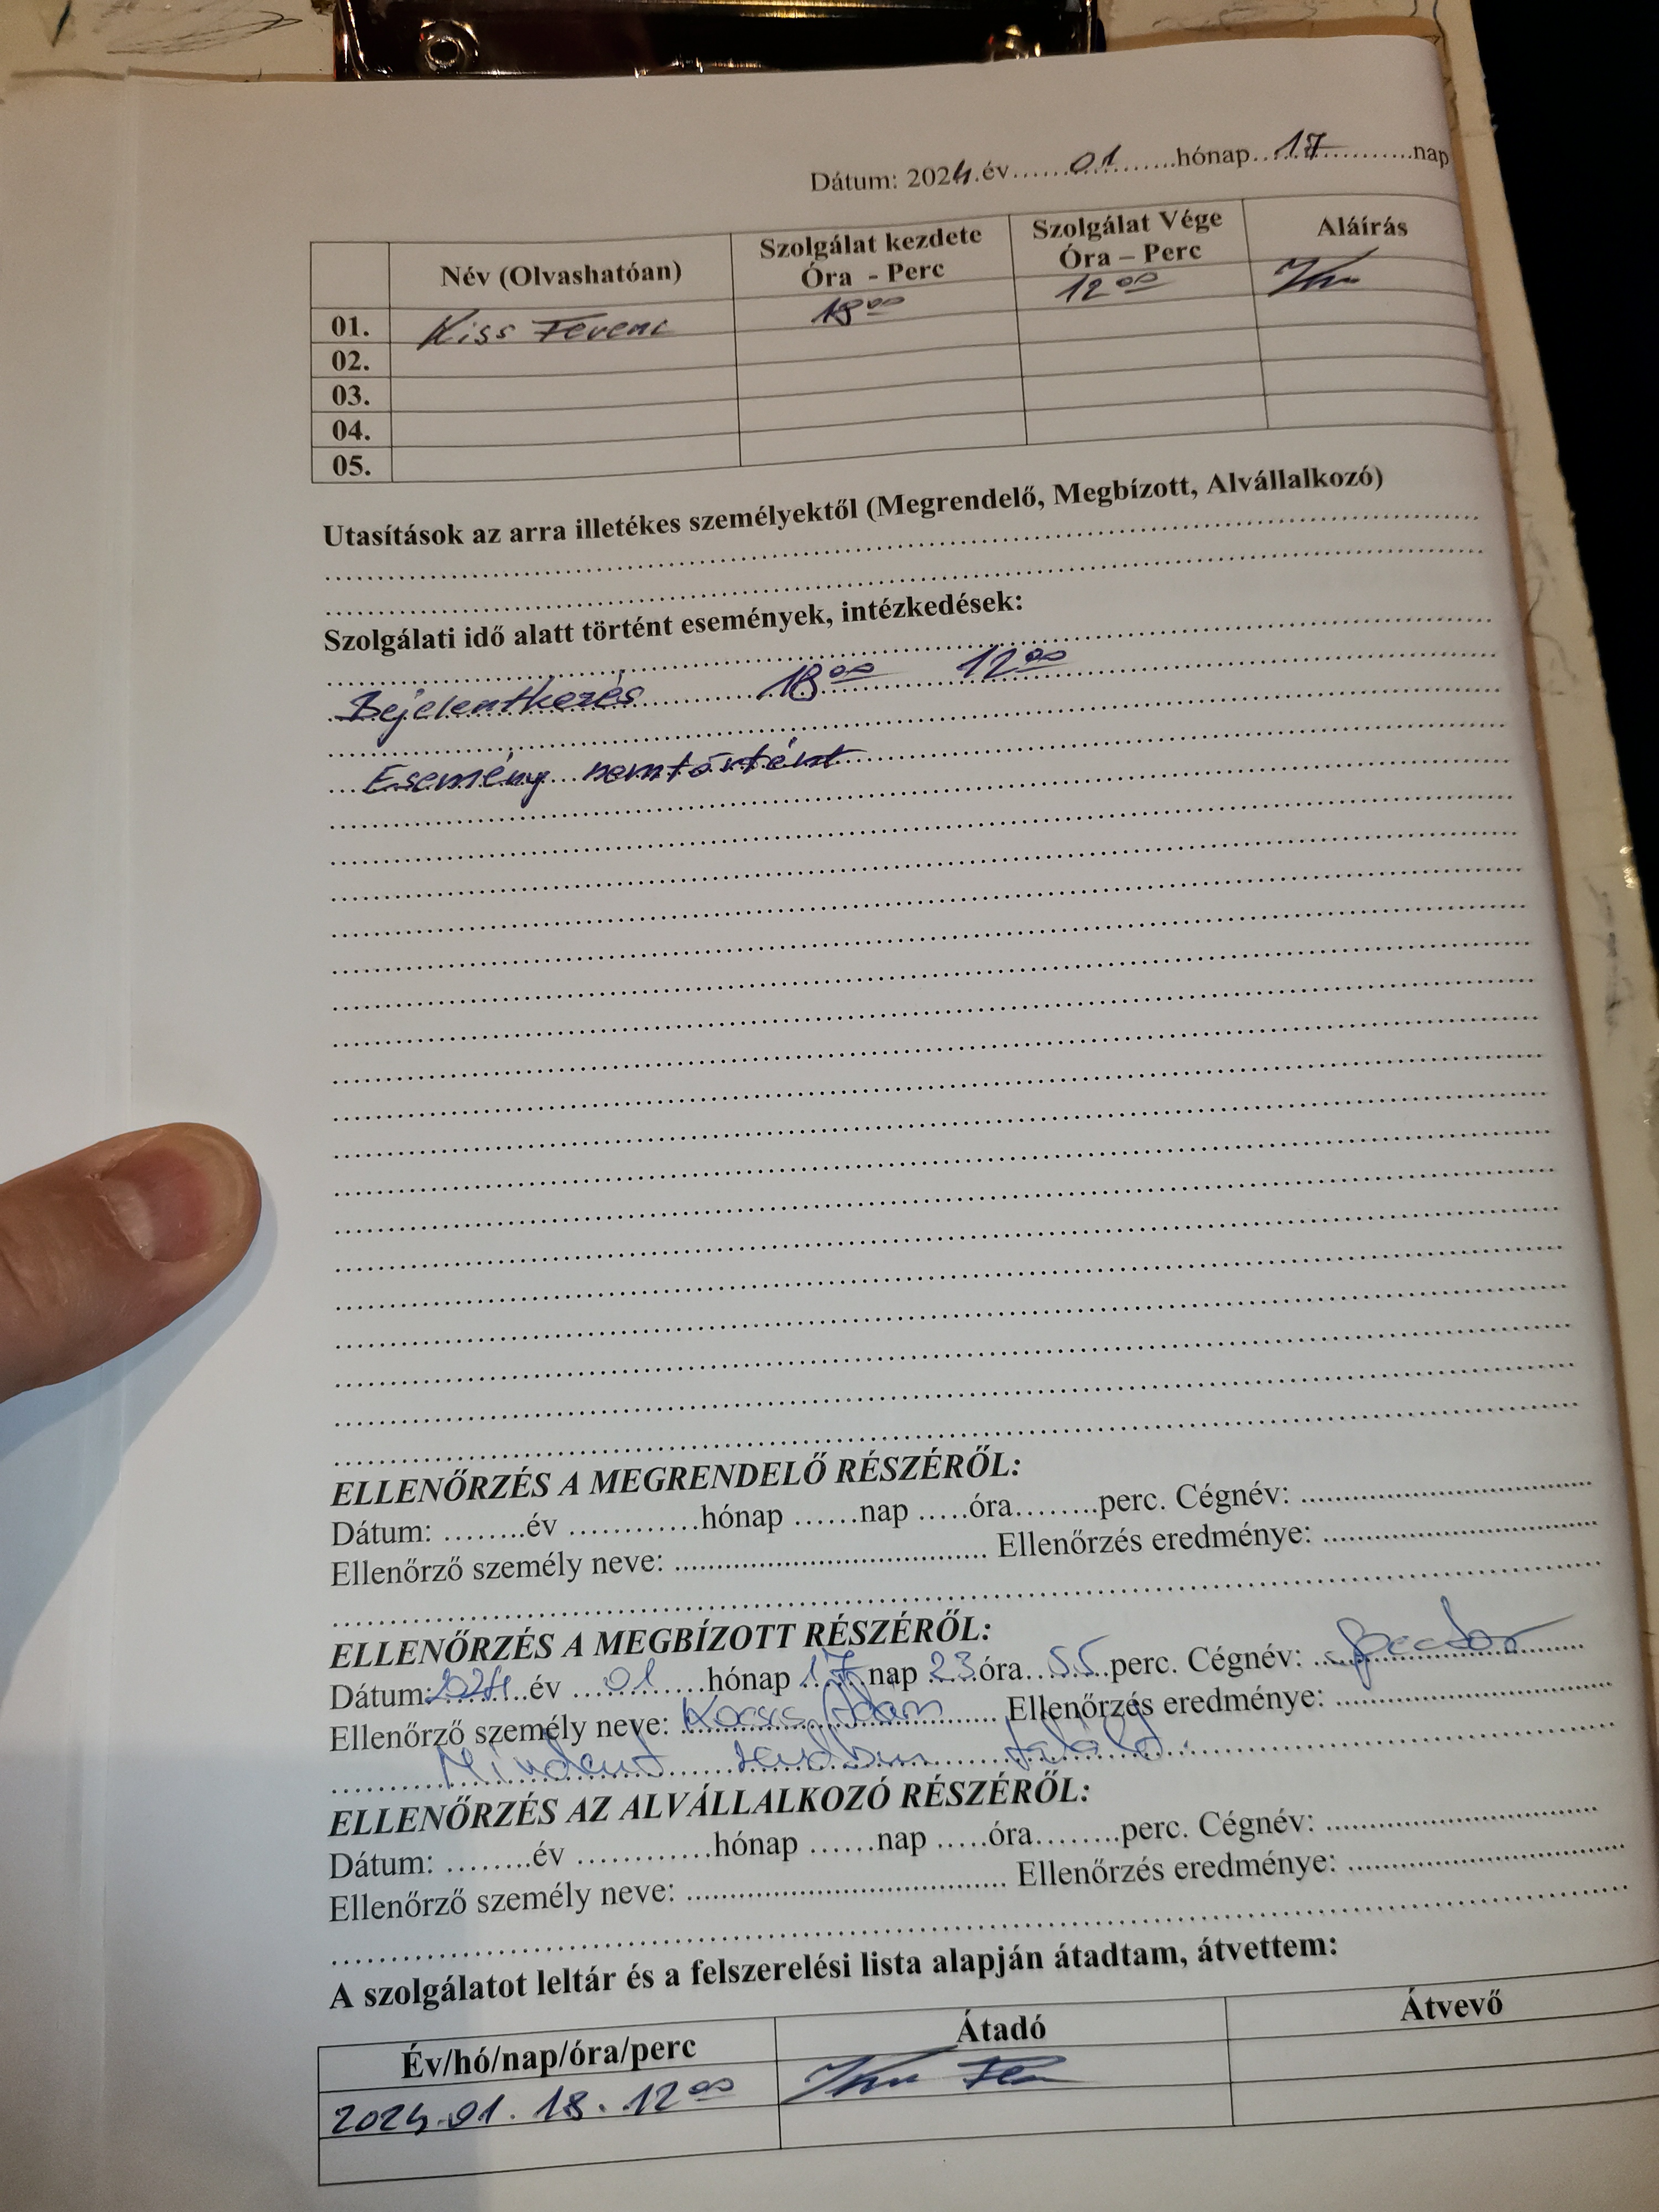 Dátum: 2024.év......01......hónap...17............nap
Név (Olvashatóan) Szolgálat kezdete Óra - Perc Szolgálat Vége Óra – Perc Aláírás
01. Kiss Ferenc 18 00 12 00
02.
03.
04.
05.
Utasítások az arra illetékes személyektől (Megrendelő, Megbízott, Alvállalkozó)
Szolgálati idő alatt történt események, intézkedések:
Bejelentkezés 18 00 12 00
Esemény nem történt
ELLENŐRZÉS A MEGRENDELŐ RÉSZÉRŐL:
Dátum: ........év .............hónap ......nap .....óra........perc. Cégnév: ................................
Ellenőrző személy neve: ................................... Ellenőrzés eredménye: ..............................
ELLENŐRZÉS A MEGBÍZOTT RÉSZÉRŐL:
Dátum: 2024 év 01 hónap 17 nap 23 óra 55 perc. Cégnév:
Ellenőrző személy neve: Kocsis Ádám Ellenőrzés eredménye: ..............................
Mindent rendben talált.
ELLENŐRZÉS AZ ALVÁLLALKOZÓ RÉSZÉRŐL:
Dátum: ........év .............hónap ......nap .....óra........perc. Cégnév: ..............................
Ellenőrző személy neve: ................................... Ellenőrzés eredménye: ..............................
A szolgálatot leltár és a felszerelési lista alapján átadtam, átvettem:
Év/hó/nap/óra/perc Átadó Átvevő
2024.01.18. 12 00